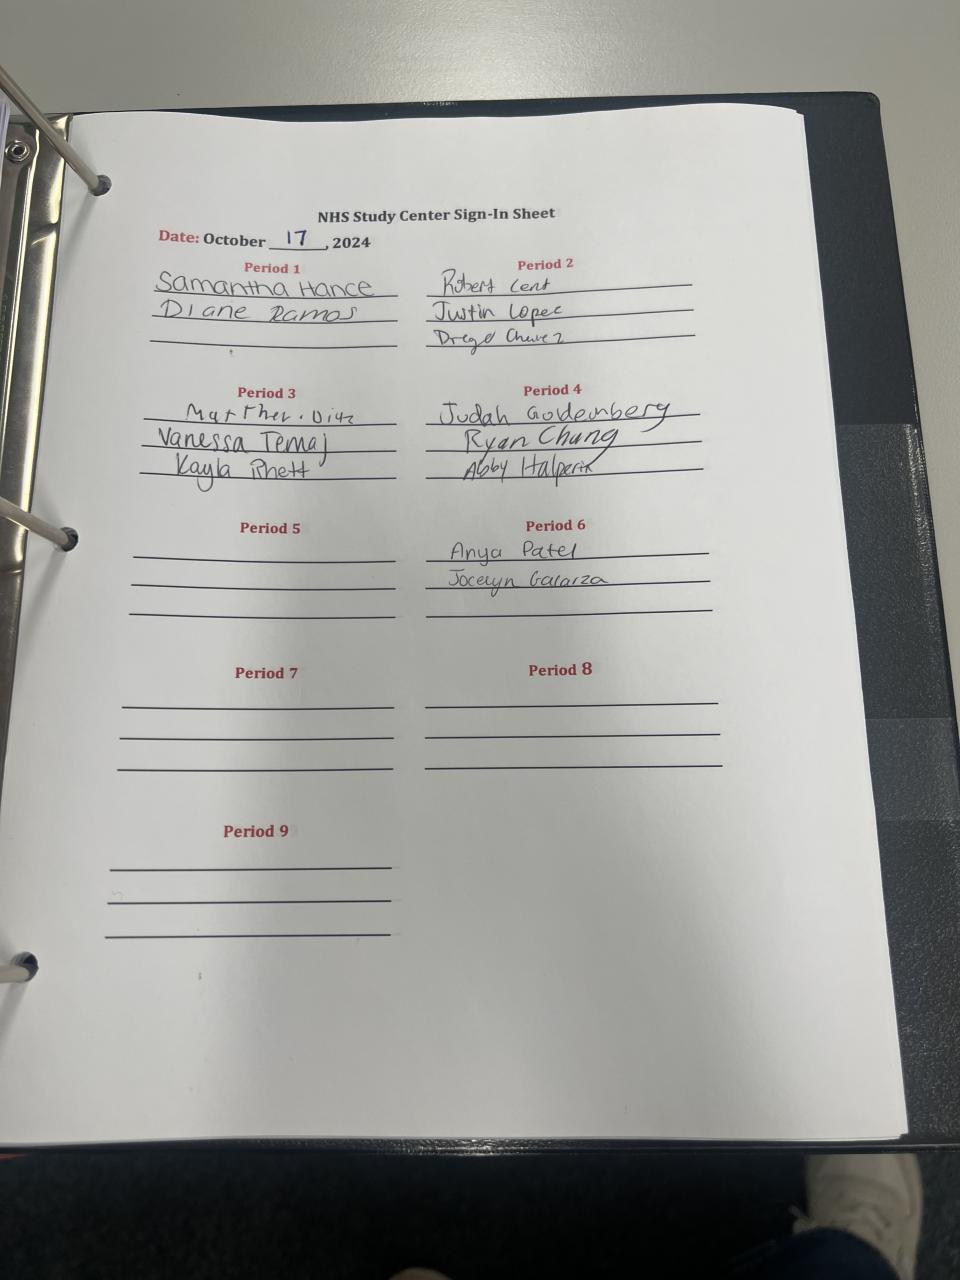 NHS Study Center Sign-In Sheet
Date: October 17, 2024
Period 1
Samantha Hance
Diane Ramos
Period 2
Robert Cent
Justin Lopez
Chavez
Period 3
Vanessa Temaj
Kayla Rhett
Period 4
Judah Goldenberg
Ryan Chung
Abby Halperin
Period 5
Period 6
Anya Patel
Jocelyn Galarza
Period 7
Period 8
Period 9